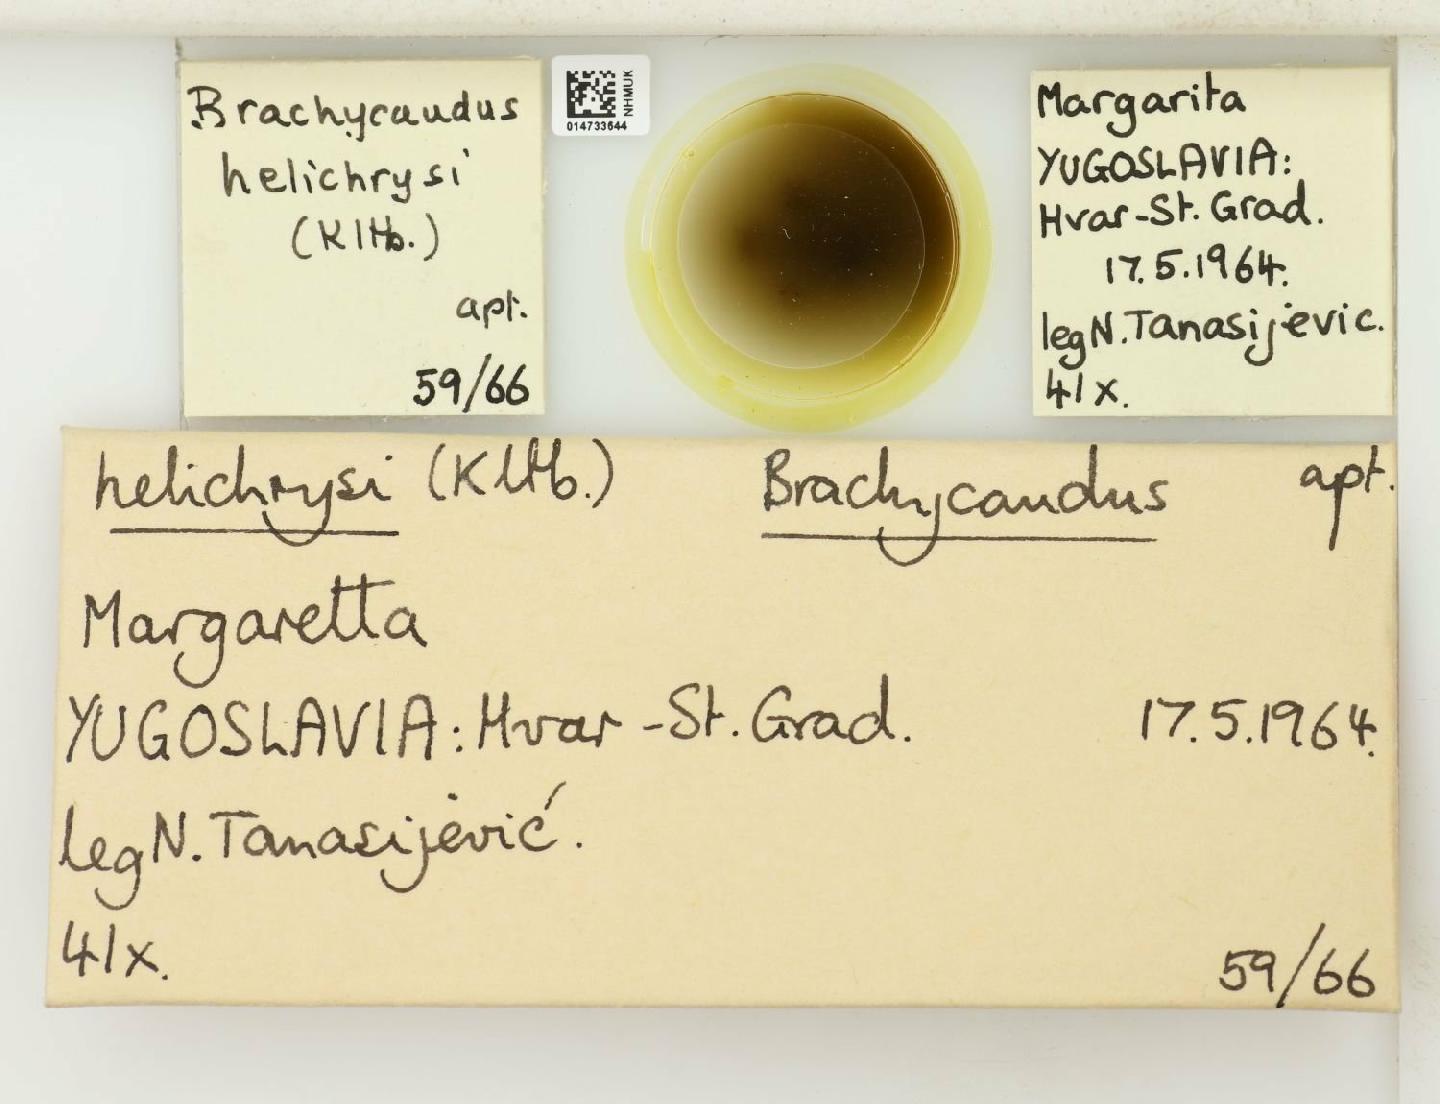 Brachycaudus
helichrysi
(Kltb.)
apt.
59/66
NHMUK
014733644
Margarita
YUGOSLAVIA:
Hvar-St. Grad.
17.5.1964.
leg N. Tanasijevic.
41x.
helichrysi (Kltb.) Brachycaudus apt.
Margaretta
YUGOSLAVIA: Hvar-St. Grad. 17.5.1964.
leg N. Tanasijević.
41x. 59/66